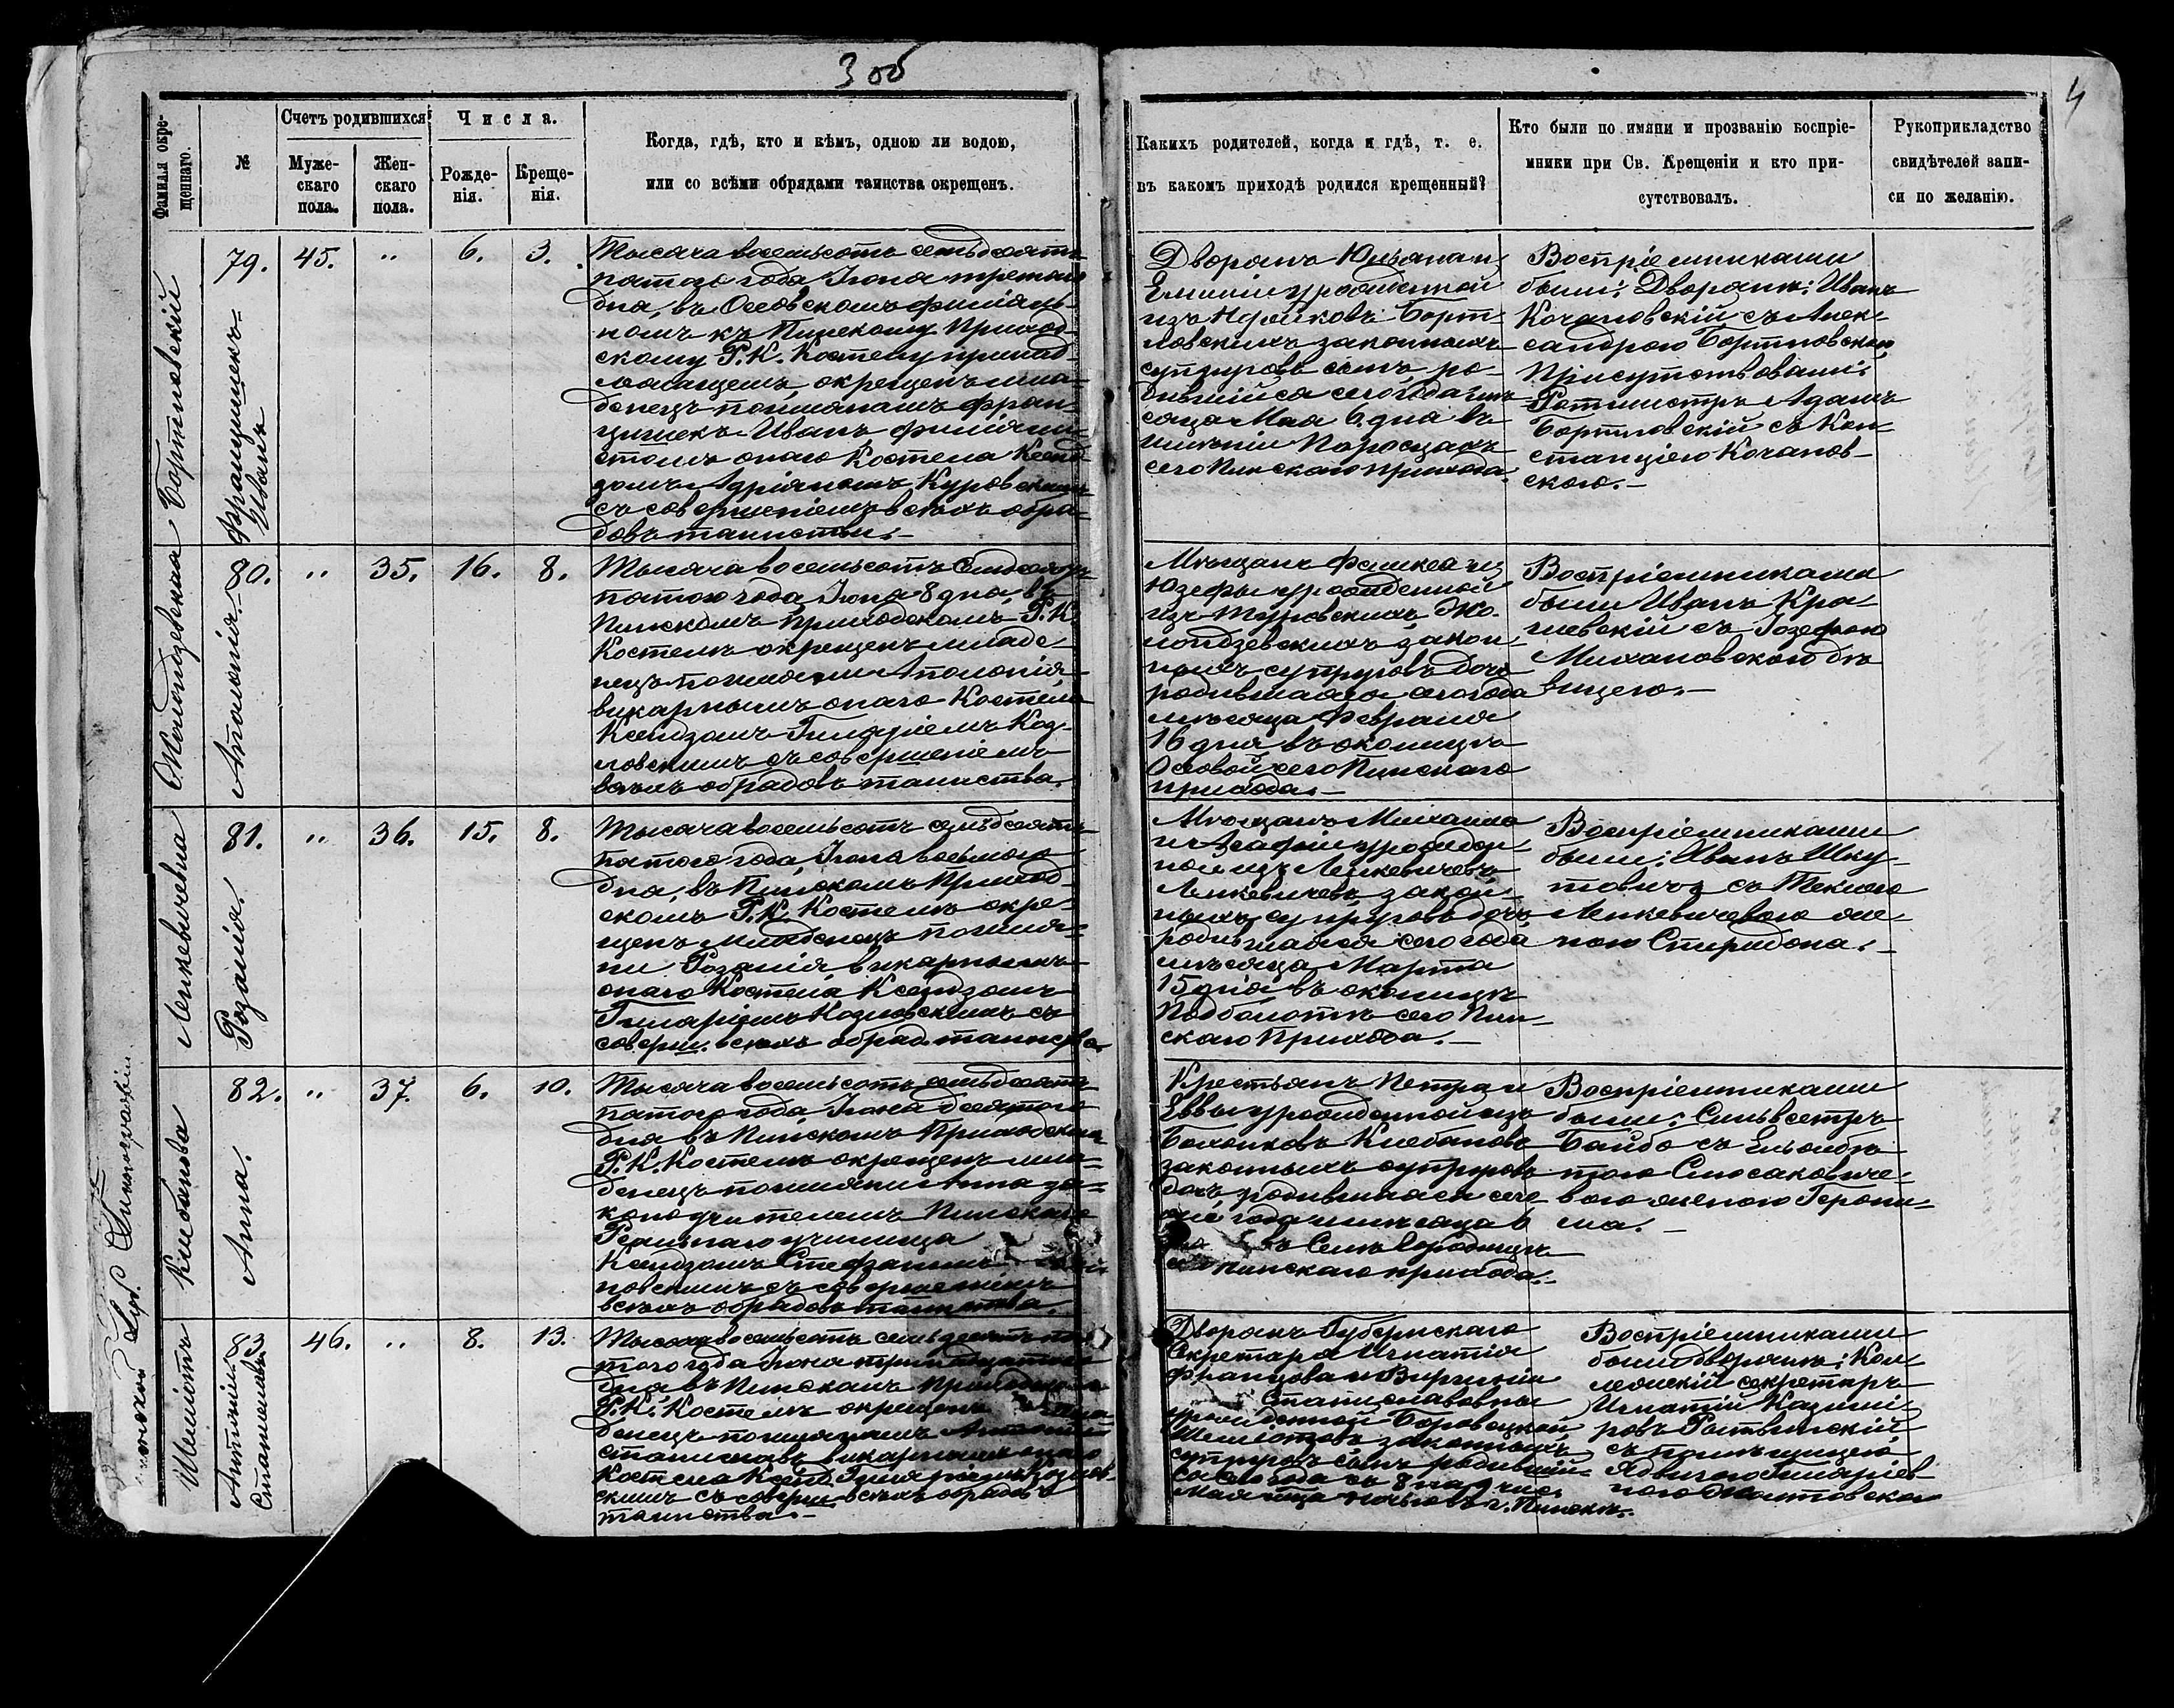 3 об
4
Фамилія окре-
щеннаго.
№
Счетъ родившихся
Муже-
скаго
пола.
Жен-
скаго
пола.
Числа.
Рожде-
нія.
Креще-
нія.
Когда, гдѣ, кто и кѣмъ, одною ли водою,
или со всѣми обрядами таинства окрещенъ.
Каких родителей, когда и гдѣ, т. е.
въ какомъ приходѣ родился крещенный?
Кто были по имяни и прозванію воспріе-
мники при Св. Крещеніи и кто при-
сутствовалъ.
Рукоприкладство
свидѣтелей запи-
си по желанію.
Бортновскій
79.
Францишекъ-
Иванъ
45.
"
6.
3.
Тысяча восемьсотъ семьдесятъ
пятого года Іюня третьяго
дня, въ Осовскомъ филіаль-
номъ къ Пинскому Приход-
скому Р. К. Костелу принад-
лежащемъ, окрещенъ мла-
денецъ по имянамъ Фран-
цишекъ-Иванъ, филіали-
стомъ онаго Костела Ксенд-
зомъ Адріяномъ Куровскимъ
съ совершеніемъ всѣхъ обря-
довъ таинства.-
Дворянъ Юльяна и
Емиліи урожденной
изъ Борт-
новскихъ законныхъ
супруговъ сынъ, ро-
дившійся сего года мѣ-
сяца Мая 6 дня въ
имѣніи Поросцахъ
сего Пинскаго прихода.
Воспріемниками
были: Дворяне: Иванъ
Качановскій съ Алек-
сандрою Бортновскою
Присутствовали:
Ротмистръ Адамъ
Бортновскій съ Кон-
станціею Качанов-
скою.-
Жолондзевская
80.
Аполонія.
"
35.
16.
8.
Тысяча восемьсотъ семьдесятъ
пятого года, Іюня 8 дня, въ
Пинскомъ Приходскомъ Р. К.
Костелѣ окрещенъ младе-
нецъ по имяни Аполонія,
викарнымъ онаго Костела
Ксендзомъ Гиляріемъ Коз-
ловскимъ съ совершеніемъ
всѣхъ обрядовъ таинства.
Мѣщанъ Феликса и
Юзефы урожденной
изъ Туровскихъ Жо-
лондзевскихъ закон-
ныхъ супруговъ дочь
родившаяся сего года
мѣсяца Февраля
16 дня въ околицѣ
Осовой сего Пинскаго
прихода.-
Воспріемниками
были Иванъ Кра-
шевскій съ Іозефою
Михановскою дѣ-
вицею.-
Ленкевичевна
81.
Розалія.
"
36.
15.
8.
Тысяча восемьсотъ семьдесятъ
пятого года, Іюня восьмого
дня, въ Пинскомъ Приход-
скомъ Р. К. Костелѣ окре-
щенъ младенецъ по имя-
ни Розалія, викарнымъ
онаго Костела, Ксендзомъ
Гиляріемъ Козловскимъ съ
соверш. всѣхъ обряд. таинства.
Мѣщанъ Михаила
и Агафіи урожден-
ной изъ Ленкевичевъ
Ленкевичевъ, закон-
ныхъ супруговъ дочь,
родившаяся сего года
мѣсяца Марта
15 дня, въ околицѣ
Подболотѣ сего Пин-
скаго Прихода.-
Воспріемниками
были: Иванъ Шку-
товичъ съ Теклею
Ленкевичевою же-
ною Спиридона.-
Клебанова
82.
Анна.
"
37.
6.
10.
Тысяча восемьсотъ семьдесятъ
пятого года, Іюня десятого
дня въ Пинскомъ Приходскомъ
Р. К. Костелѣ окрещенъ мла-
денецъ по имяни Анна за-
коноучителемъ Пинскаго
Реальнаго училища
Ксендзомъ Стефаномъ
новскимъ съ совершеніемъ
всѣхъ обрядовъ таинства.
Крестьянъ Петра и
Еввы урожденной изъ
Клебановъ
законныхъ супруговъ
дочь, родившаяся сего
года мѣсяца 6
въ Селѣ Городищѣ
Пинскаго прихода.-
Воспріемниками
были: Сильвестръ
Байбо съ Ельжбѣ-
тою
вою женою Герони-
ма.-
Шеліотъ
83
Антоній
Станиславъ.
46.
"
8.
13.
Тысяча восемьсотъ семьдесятъ пя-
того года Іюня тринадцатого
дня въ Пинскомъ Приходскомъ
Р. К. Костелѣ окрещенъ мла-
денецъ по имянамъ Антоній
Станиславъ, викарнымъ онаго
Костела Ксендз. Гиляріемъ Козлов-
скимъ съ соверш. всѣхъ обрядовъ
таинства.-
Дворянъ Губернскаго
Секретаря Игнатія
Францова и Виргиніи
Станиславовны
урожденной Боровецкой
Шеліотовъ законныхъ
супруговъ сынъ, родивший-
ся сего года съ 8 на 9 число
Мая м-ца ночью въ г. Пинскѣ.-
Воспріемниками
были дворяне: Кол-
лежскій секретарь
Игнатій Казими-
ровъ
съ помѣщицею
Ядвигою Гиляріев-
ною Желтовскою